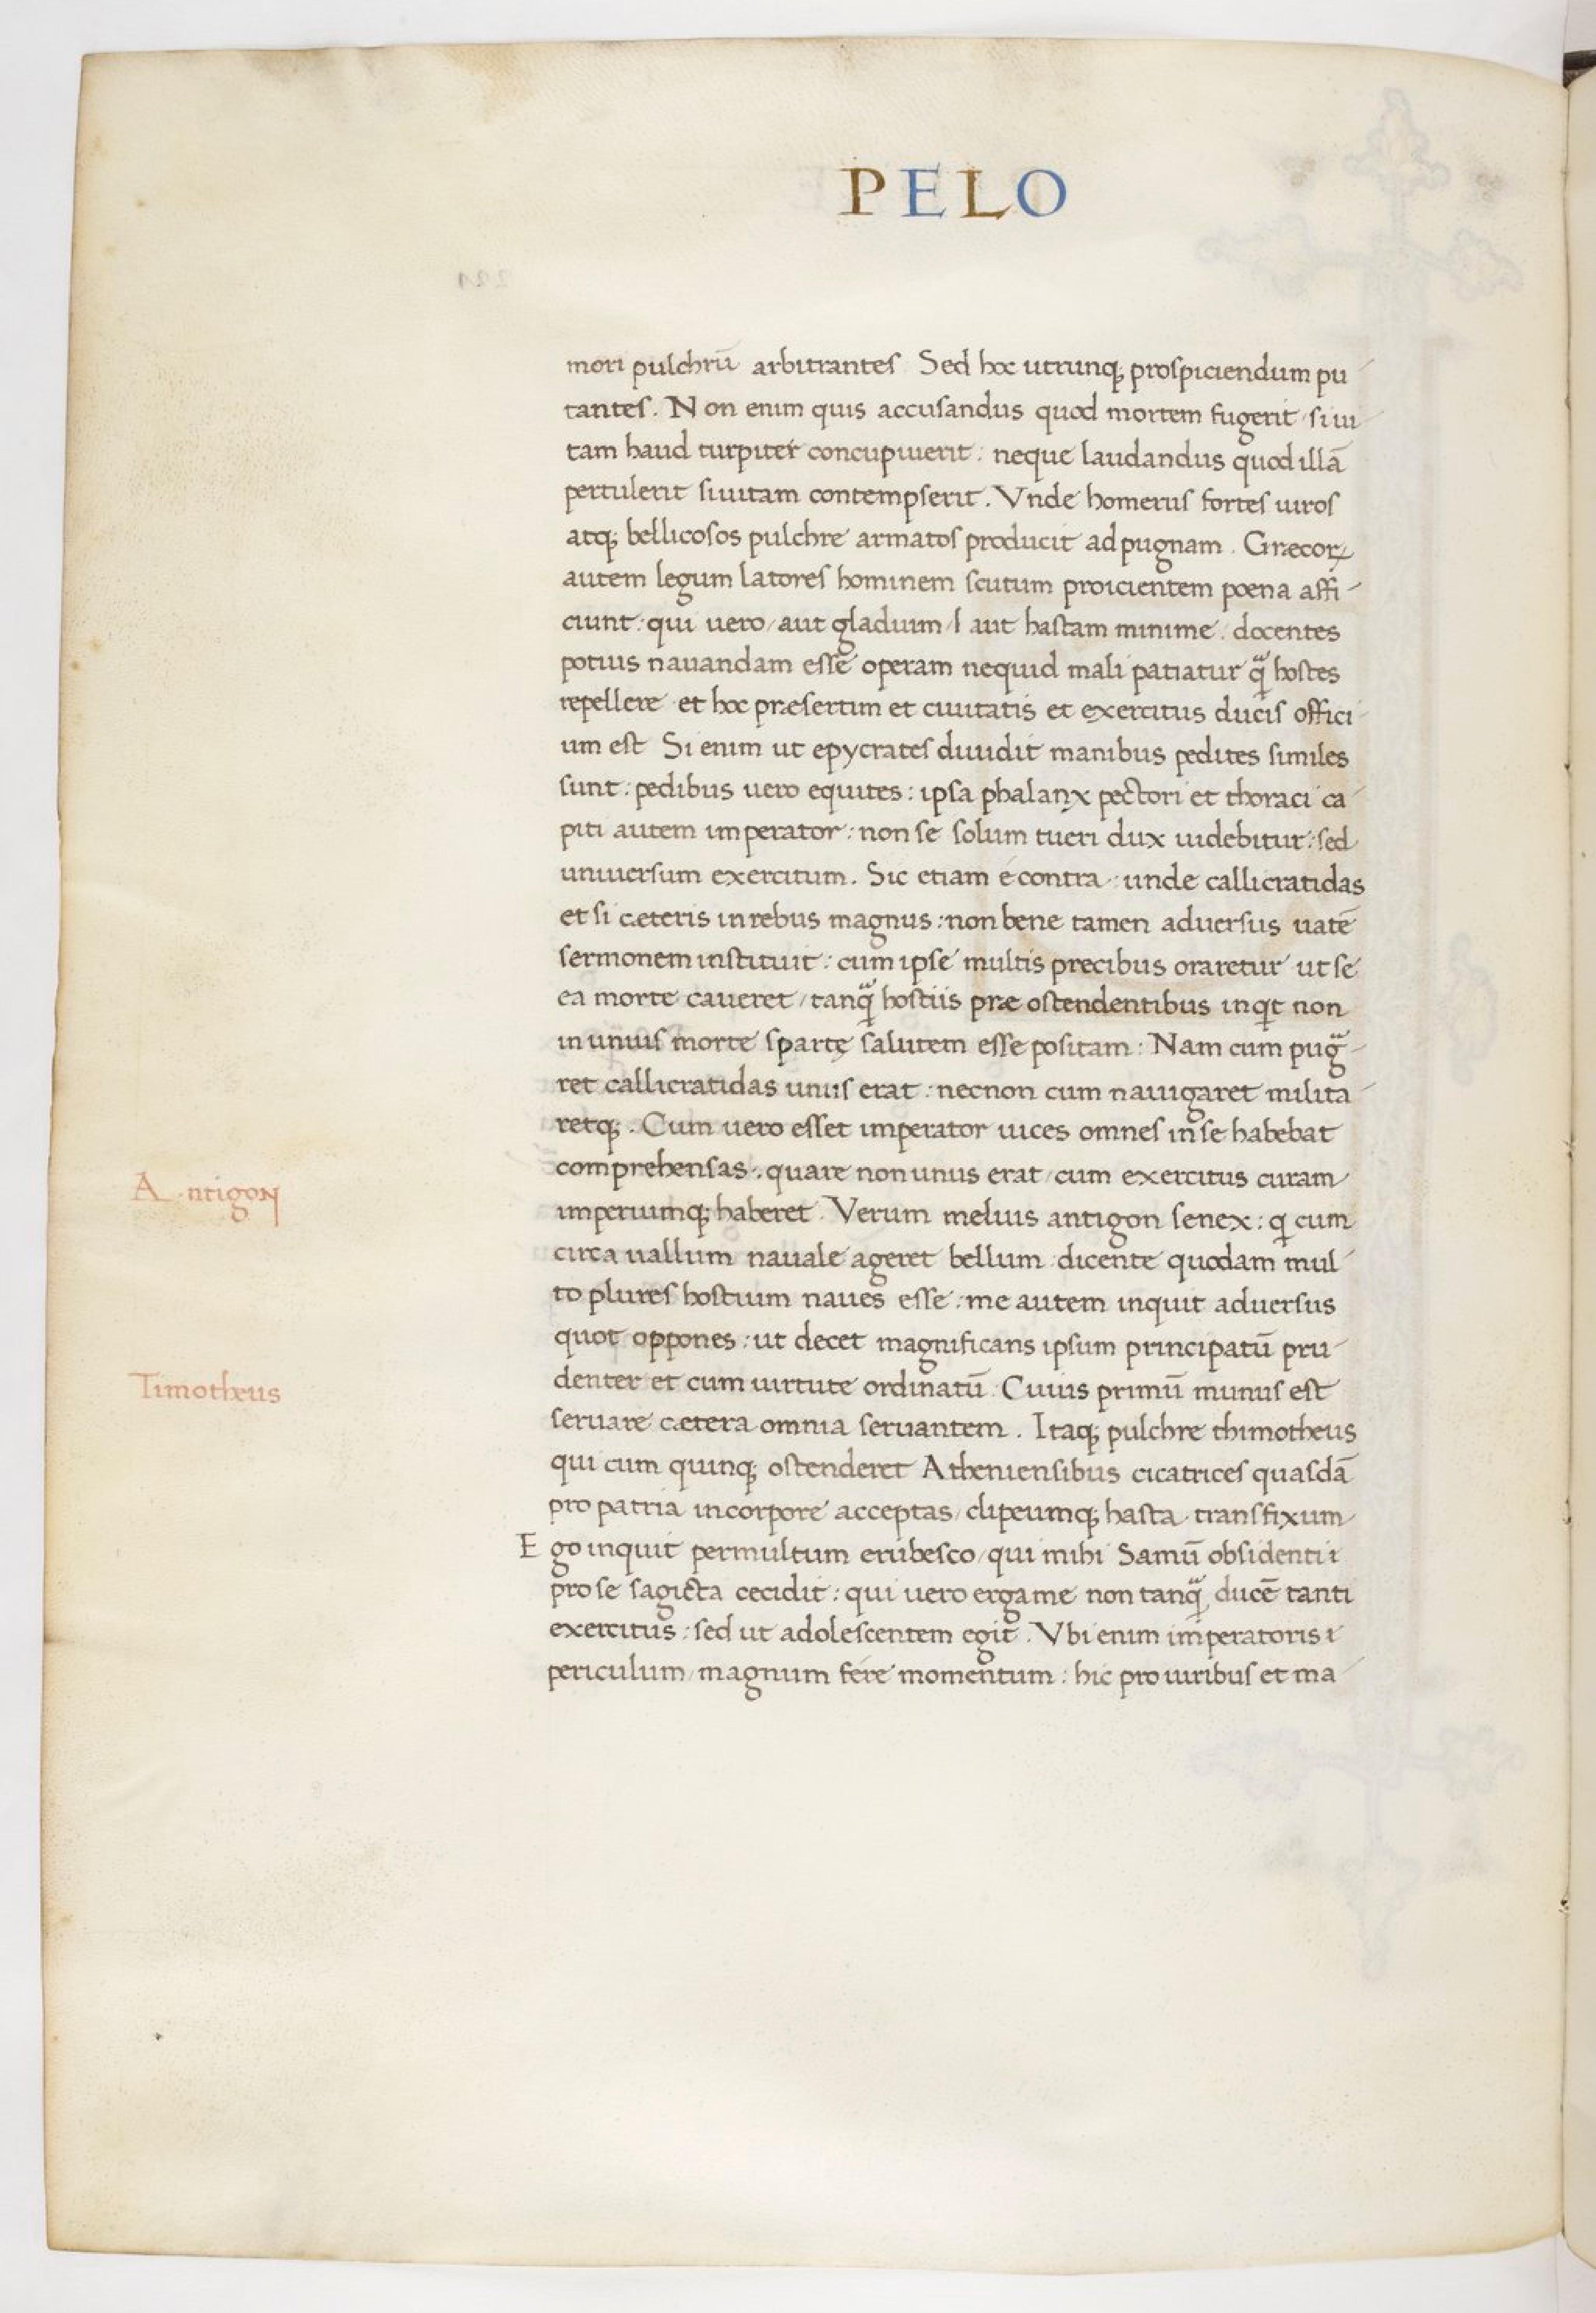 PELO
mori pulchrū arbitrantes Sed hoc utrunq; prospiciendum pu
tantes. Non enim quis accusandus quod mortem fugerit si ui
tam haud turpiter concupiuerit: neque laudandus quod illā
pertulerit si uitam contempserit. Vnde homerus fortes uiros
atq; bellicosos pulchre armatos producit ad pugnam. Græcoꝝ
autem legum latores hominem scutum proicientem poena affi-
ciunt: qui uero/ aut gladium/ aut hastam minime. docentes
potius nauandam esse operam nequid mali patiatur q̃ hostes
repellere et hoc præsertim et ciuitatis et exercitus ducis offici-
um est Si enim ut epycrates diuidit manibus pedites similes
sunt: pedibus uero equites: ipsa phalanx pectori et thoraci ca-
piti autem imperator: non se solum tueri dux uidebitur: sed
uniuersum exercitum. Sic etiam e contra: unde callicratidas
et si cæteris in rebus magnus: non bene tamen aduersus uatē
sermonem instituit: cum ipse multis precibus oraretur ut se
ea morte caueret/ tanq̃ hostiis præ ostendentibus inqt non
in unius morte spartę salutem esse positam: Nam cum pug̃-
ret callicratidas unus erat: necnon cum nauigaret milita-
retq;. Cum uero esset imperator uices omnes in se habebat
comprehensas. quare non unus erat/ cum exercitus curam
Antigon
imperiumq; haberet. Verum melius antigon senex: q cum
circa uallum nauale ageret bellum dicente quodam mul-
to plures hostium naues esse: me autem inquit aduersus
quot oppones: ut decet magnificans ipsum principatū pru-
Timotheus
denter et cum uirtute ordinatū. Cuius primū munus est
seruare cætera omnia seruantem. Itaq; pulchre thimotheus
qui cum quinq; ostenderet Atheniensibus cicatrices quasdā
pro patria in corpore acceptas/ clipeumq; hasta transfixum
Ego inquit permultum erubesco/ qui mihi Samū obsidenti
pro se sagicta cecidit: qui uero erga me non tanq̃ ducē tanti
exercitus: sed ut adolescentem egit. Vbi enim imperatoris
periculum/ magnum fere momentum: hic pro uiribus et ma-